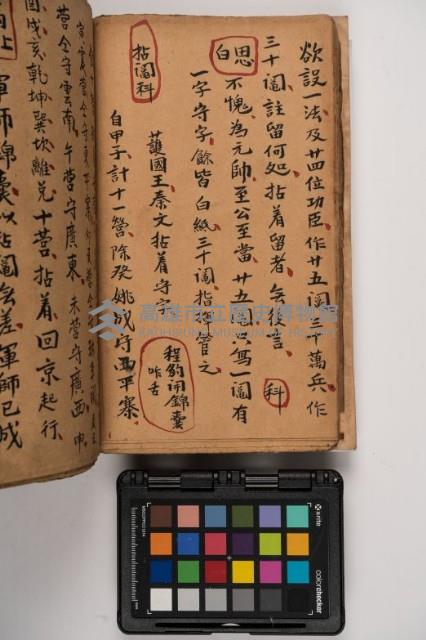 欲設一法及廿四位功臣作廿五阄三十萬兵作
三十阄註留何処拈着留者無後言 科
思白 不愧為元帥至公至當廿五
寫一阄有
一字守字餘皆白紙三十阄指
管之
拈阄科 護國王秦文拈着守字
程豹闹錦囊
咋舌
自甲子計十一營除癸姚
守西平寨
守雲南午營守廣東未營守廣西申
酉戌亥乾坤巽坎離兌十營拈着回京起行
軍師錦囊以拈阄無差軍師已成
高雄市立歷史博物館
KAOHSIUNG MUSEUM OF HISTORY
x-rite
colorchecker